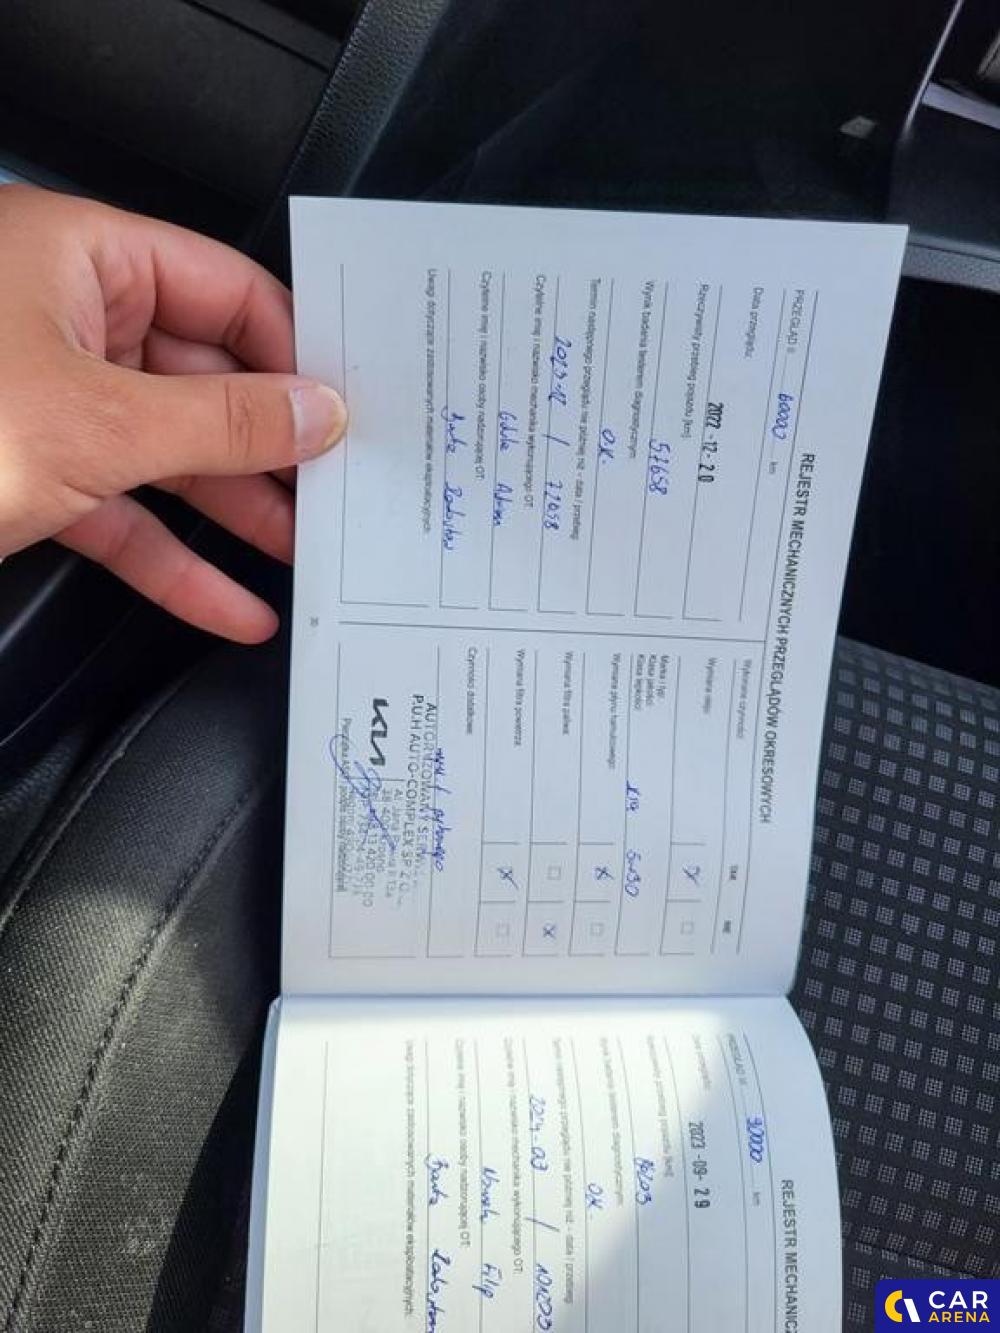 REJESTR MECHANICZNYCH PRZEGLĄDÓW OKRESOWYCH
PRZEGLĄD II: 60000 km
Data przeglądu:
2022-12-20
Rzeczywisty przebieg pojazdu [km]
57658
Wynik badania testerem diagnostycznym:
O.K.
Termin następnego przeglądu nie później niż - data / przebieg
2023-12 / 72658
Czytelne imię i nazwisko mechanika wykonującego OT:
Adrian
Czytelne imię i nazwisko osoby nadzorującej OT:
Uwagi dotyczące zastosowanych materiałów eksploatacyjnych:
30
Wykonane czynności TAK NIE
Wymiana oleju
Marka i typ:
Klasa jakości:
Klasa lepkości:
KIA 5W30
Wymiana płynu hamulcowego:
Wymiana filtra paliwa:
Wymiana filtra powietrza:
Czynności dodatkowe:
AUTORYZOWANY SERWIS
P.U.H AUTO-COMPLEX SP. Z O.
KIA
REJESTR MECHANICZ
PRZEGLĄD III: 90000 km
Data przeglądu:
2023-09-29
Rzeczywisty przebieg pojazdu [km]
86203
Wynik badania testerem diagnostycznym:
O.K.
Termin następnego przeglądu nie później niż - data / przebieg
2024-03 / 101203
Czytelne imię i nazwisko mechanika wykonującego OT:
Filip
Czytelne imię i nazwisko osoby nadzorującej OT:
Uwagi dotyczące zastosowanych materiałów eksploatacyjnych:
CAR
ARENA